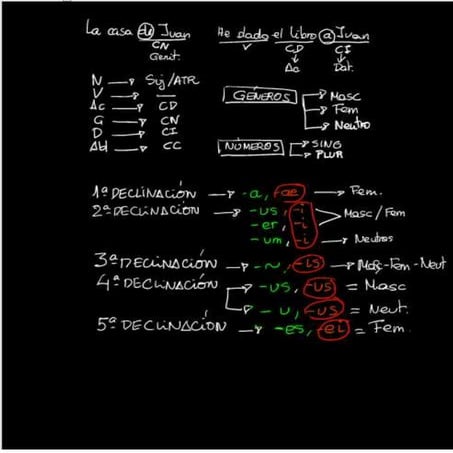 La casa de Juan
CN
Genit.
He dado el libro a Juan
V CD CI
Ac Dat.
N → Suj/ATR
V → —
Ac → CD
G → CN
D → CI
Abl → CC
GÉNEROS → Masc
→ Fem
→ Neutro
NÚMEROS → SING
→ PLUR
1ª DECLINACIÓN → -a, -ae → Fem.
2ª DECLINACIÓN → -us, -i > Masc/Fem
-er, -i
-um, -i → Neutros
3ª DECLINACIÓN → -~, -is → Masc-Fem-Neut
4ª DECLINACIÓN → -us, -us = Masc
→ -u, -us = Neut.
5ª DECLINACIÓN → -es, -ei = Fem.